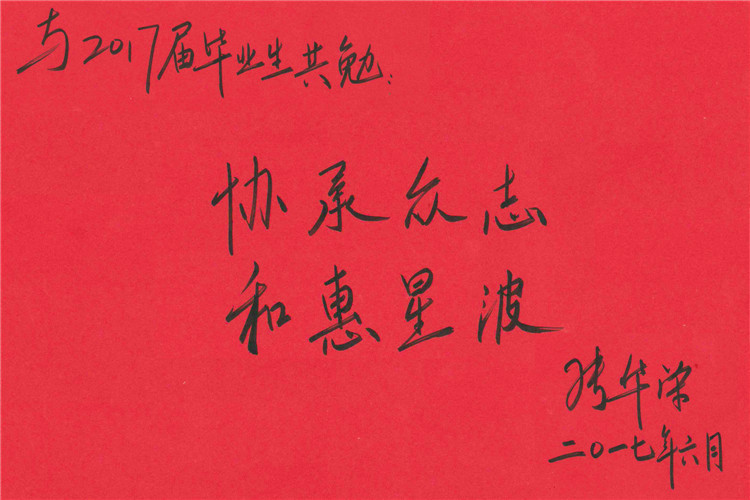 与2017届毕业生共勉:
协承众志
和惠星波
张华荣
二〇一七年六月